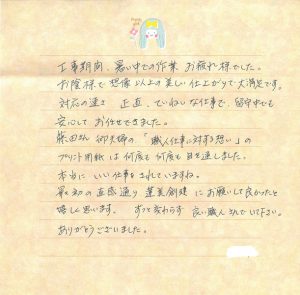 工事期間、暑い中での作業 お疲れ様でした。
お陰様で想像以上の美しい仕上がりで大満足です。
対応の速さ 正直、ていねいな仕事で、留守中でも
安心してお任せできました。
藤田さん 御夫婦の「職人仕事に対する想い」の
プリント用紙は何度も何度も目を通しました。
本当にいい仕事をされていますね。
最初の直感通り 蓮美創建にお願いして良かったと
嬉しく思います。 ずっと変わらず 良い職人さんでいて下さい。
ありがとうございました。